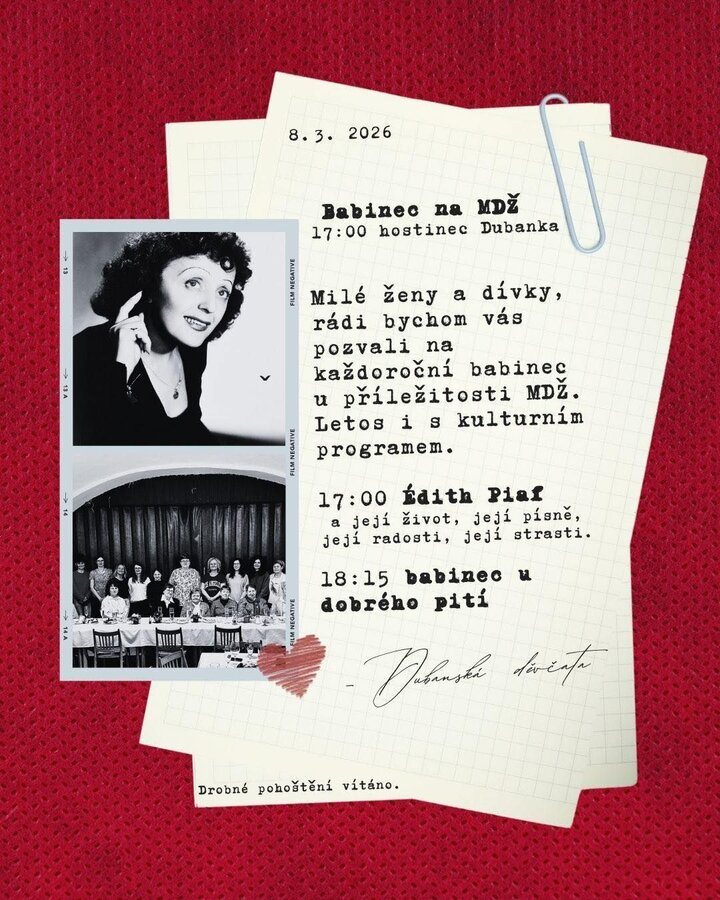 8.3. 2026
Babinec na MDŽ
17:00 hostinec Dubanka
Milé ženy a dívky,
rádi bychom vás
pozvali na
každoroční babinec
u příležitosti MDŽ.
Letos i s kulturním
programem.
17:00 Édith Piaf
a její život, její písně,
její radosti, její strasti.
18:15 babinec u
dobrého pití
- Dubanská děvčata
Drobné pohoštění vítáno.
13
FILM NEGATIVE
13 A
FILM NEGATIVE
14
14 A
FILM NEGATIVE